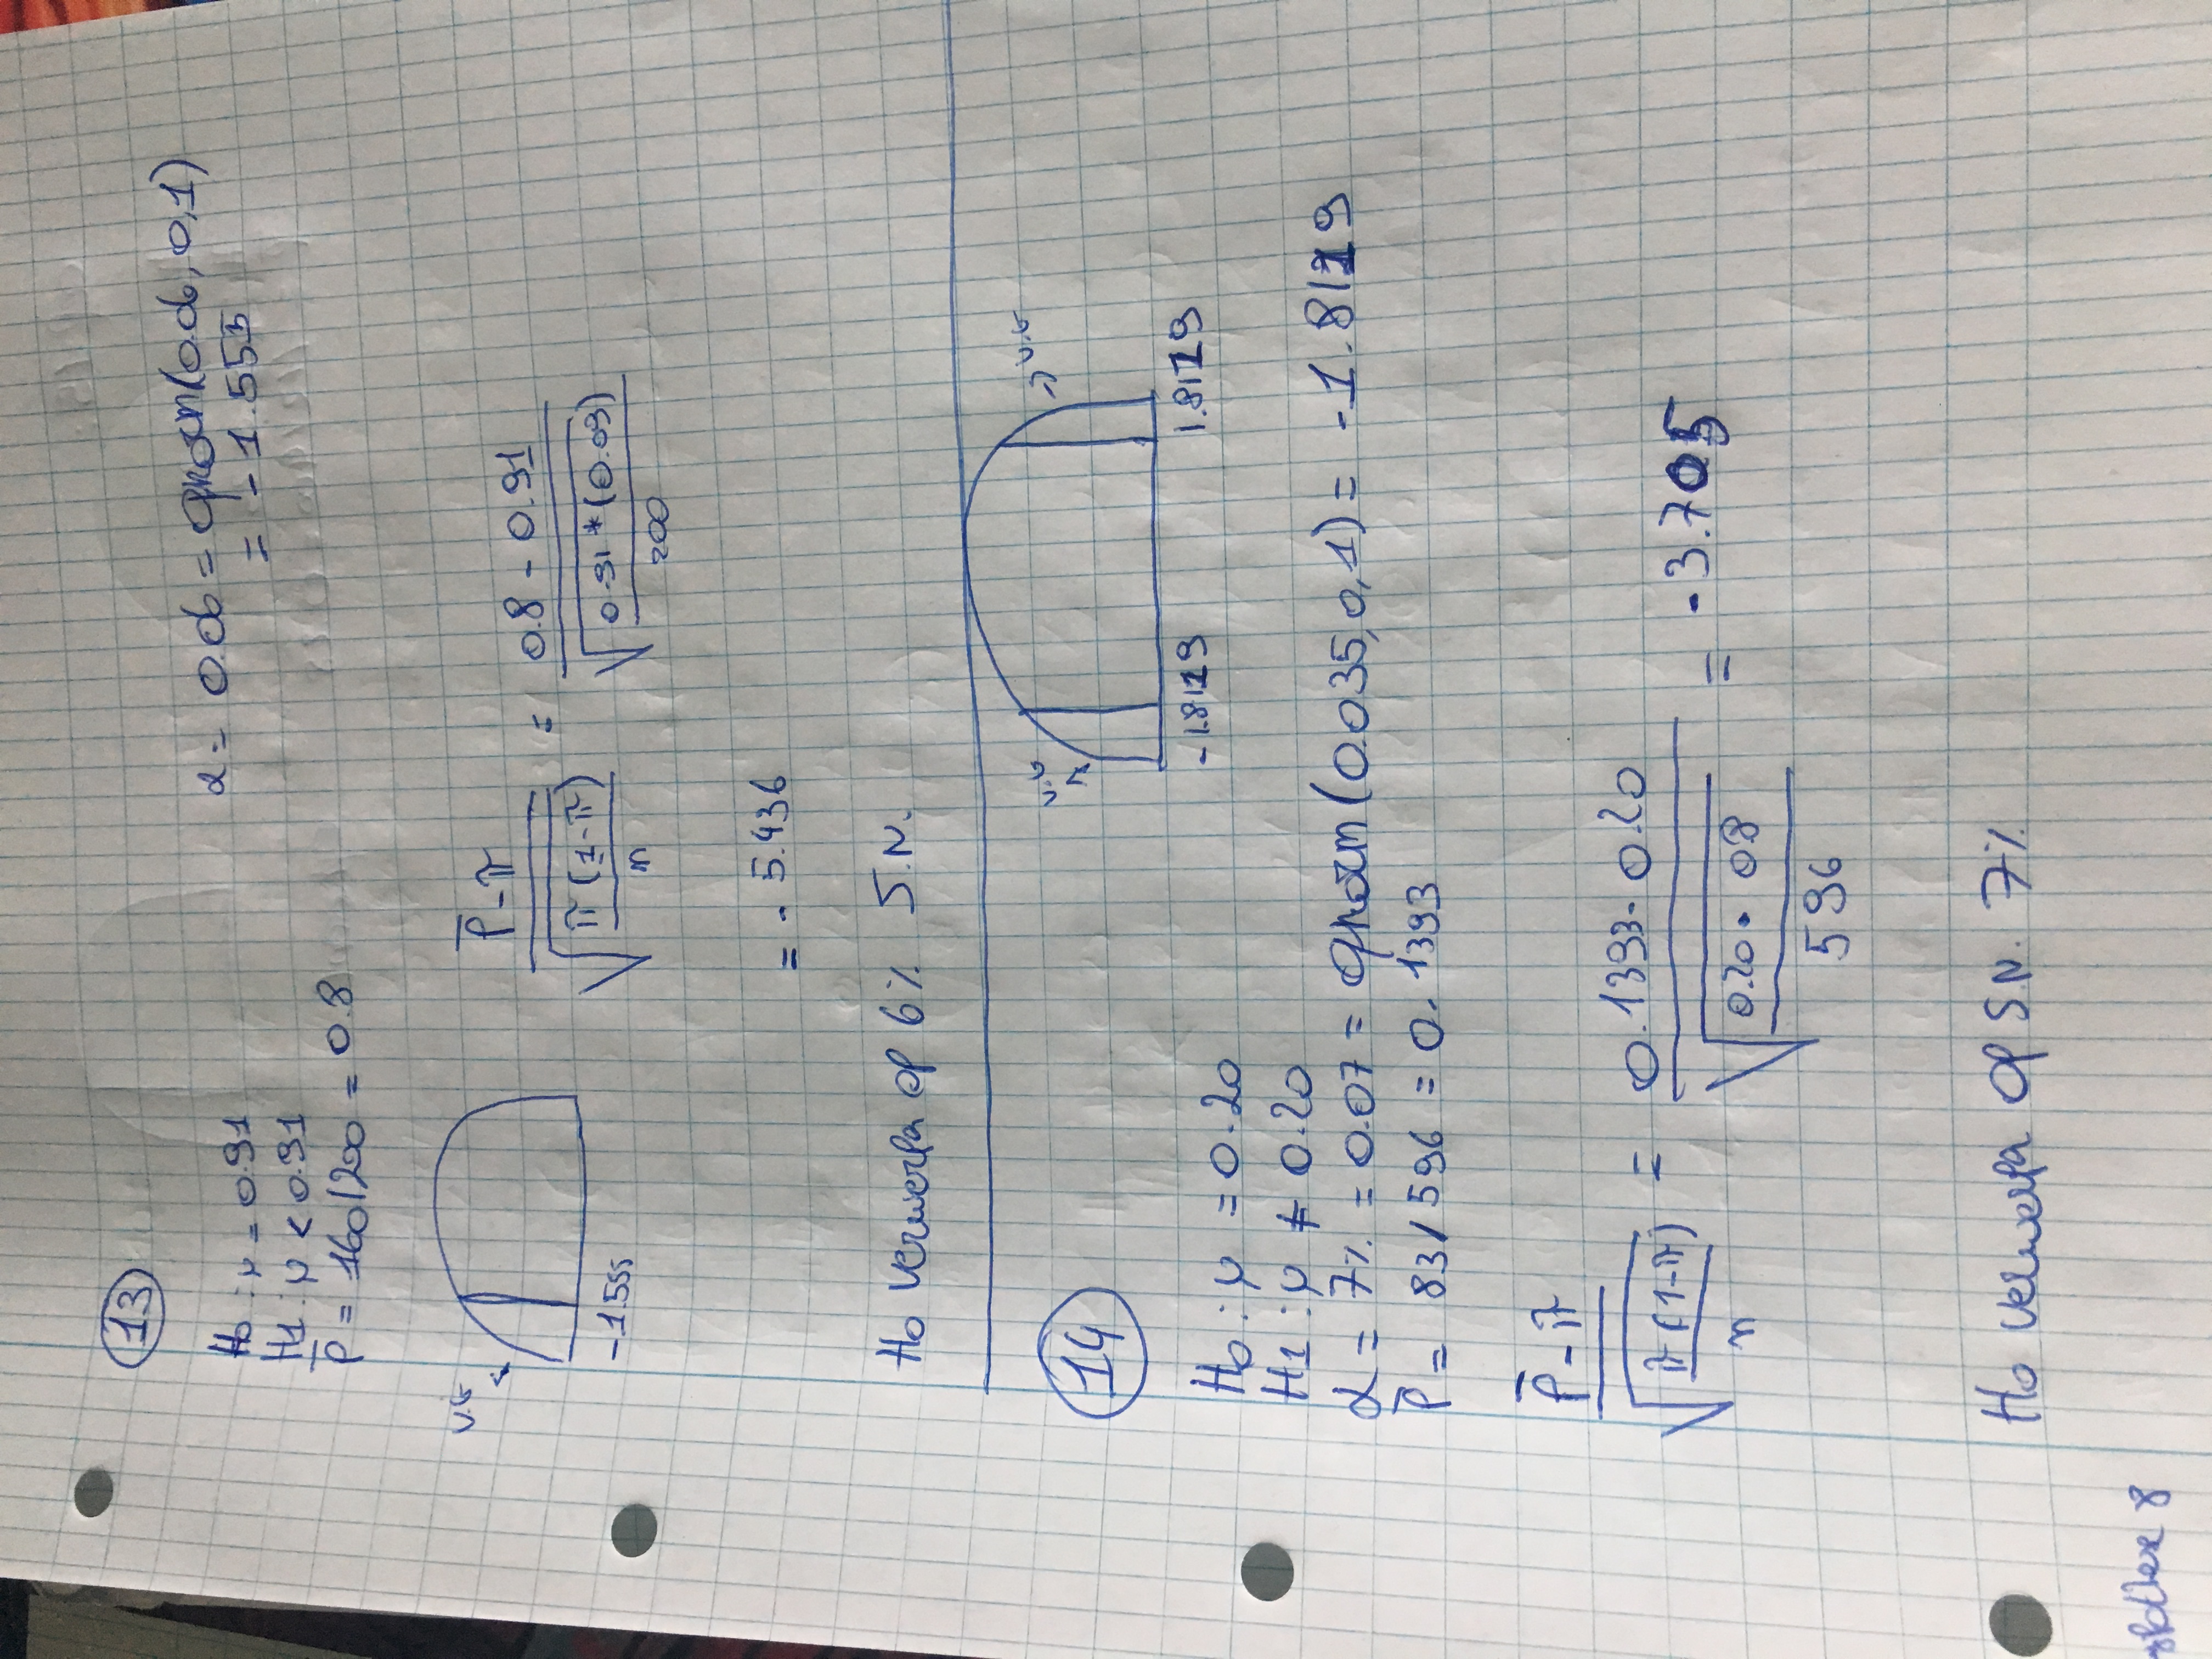 13
H0 : μ = 0.91
H1 : μ < 0.91
P̄ = 160/200 = 0.8
α = 0.06 = qnorm(0.06, 0,1)
= -1.555
V.G
-1.555
P̄ - π / √(π(1-π)/n) = 0.8 - 0.91 / √(0.91*(0.09)/200)
= - 5.436
H0 verwerpen op 6% S.N.
14
V.G
V.G
-1.8119
1.8119
H0 : μ = 0.20
H1 : μ ≠ 0.20
α = 7% = 0.07 = qnorm(0.035,0,1) = -1.8119
P̄ = 83/596 = 0.1393
P̄ - π / √(π(1-π)/n) = 0.1393 - 0.20 / √(0.20 • 0.8/596) = -3.705
H0 verwerpen op S.N. 7%
8